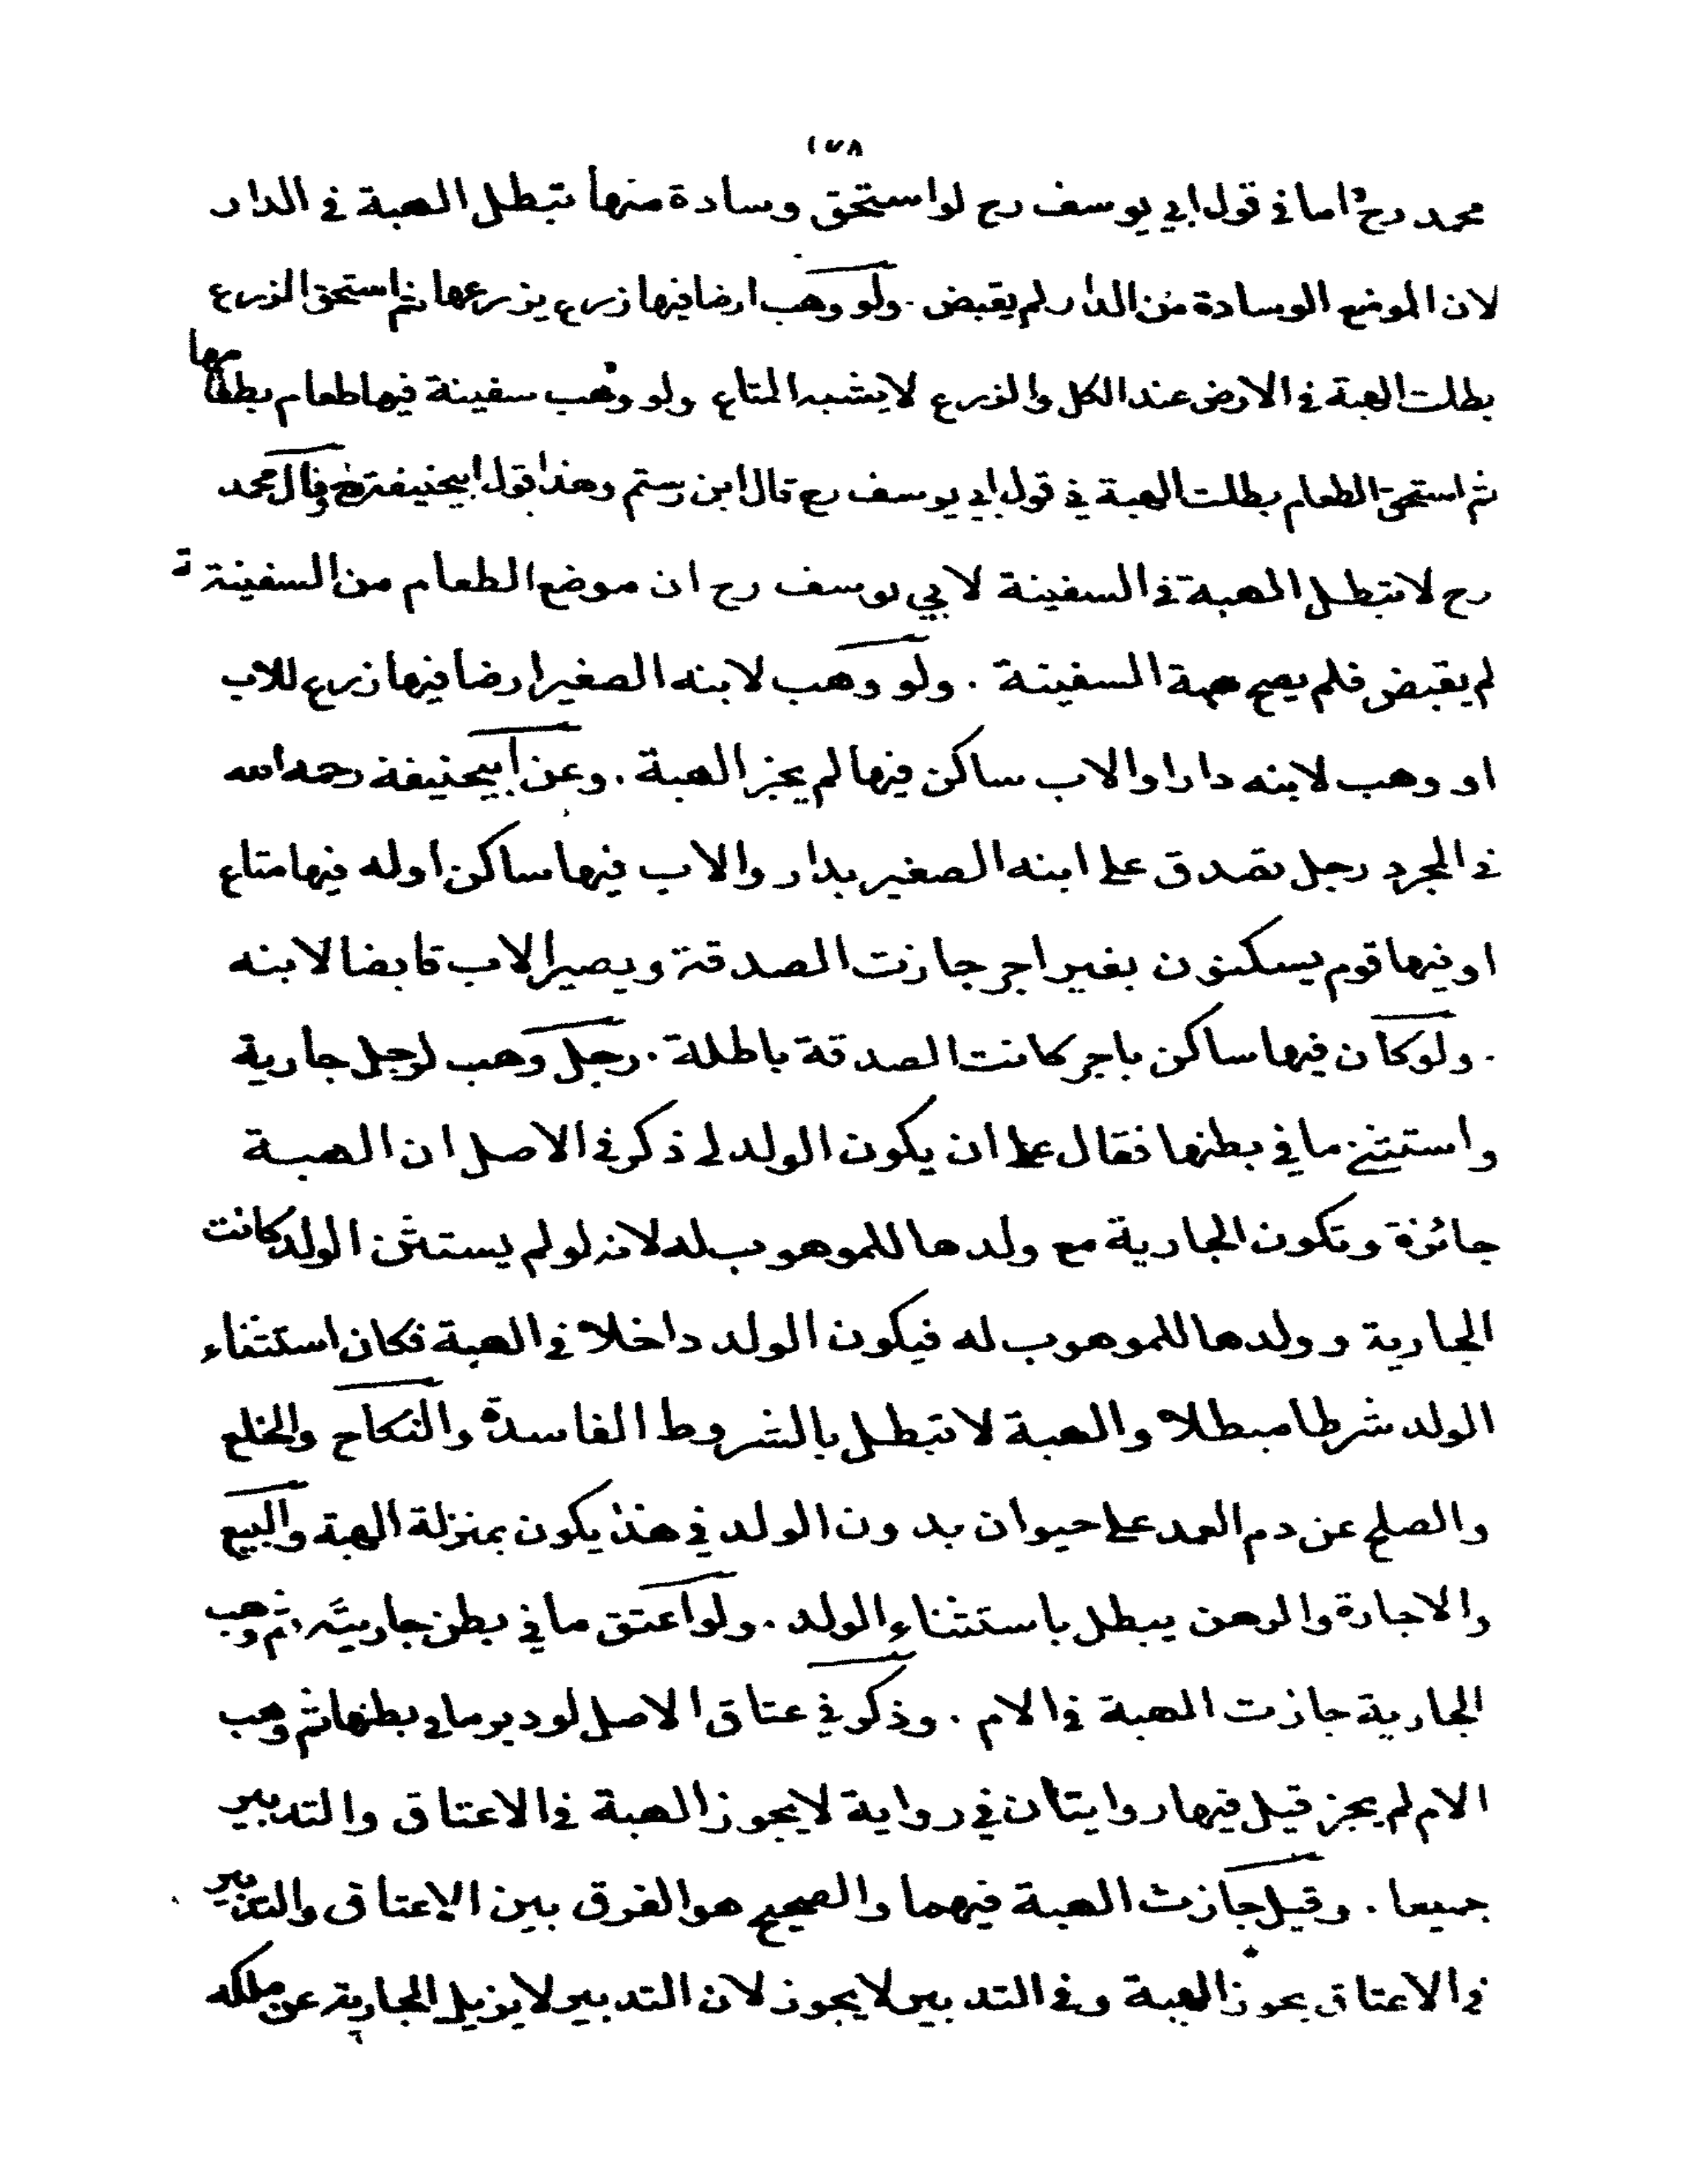 ١٧٨
محمد رح اما في قول ابي يوسف رح لو استحق وسادة منها تبطل الهبة في الدار
لان الموضع الوسادة من الدار لم يقبض . ولو وهب ارضا فيها زرع بزرعها ثم استحق الزرع
بطلت الهبة في الارض عند الكل والزرع لا يشبه المتاع ولو وهب سفينة فيها طعام بطعامها
ثم استحق الطعام بطلت الهبة في قول ابي يوسف رح قال ابن رستم وهذا قول ابيحنيفة رح وقال محمد
رح لا تبطل الهبة في السفينة لابي يوسف رح ان موضع الطعام من السفينة
لم يقبض فلم يصح هبة السفينة . ولو وهب لابنه الصغير ارضا فيها زرع للاب
او وهب لابنه دارا والاب ساكن فيها لم يجز الهبة . وعن ابيحنيفة رحمه الله
في المجرد رجل تصدق على ابنه الصغير بدار والاب فيها ساكن او له فيها متاع
او فيها قوم يسكنون بغير اجر جازت الصدقة ويصير الاب قابضا لابنه
. ولو كان فيها ساكن باجر كانت الصدقة باطلة . رجل وهب لرجل جارية
واستثنى ما في بطنها فقال على ان يكون الولد لي ذكر في الاصل ان الهبة
جائزة وتكون الجارية مع ولدها للموهوب له لانه لو لم يستثن الولد كانت
الجارية وولدها للموهوب له فيكون الولد داخلا في الهبة فكان استثناء
الولد شرطا مبطلا والهبة لا تبطل بالشروط الفاسدة والنكاح والخلع
والصلح عن دم العمد على حيوان بدون الولد في هذا يكون بمنزلة الهبة والبيع
والاجارة والرهن يبطل باستثناء الولد . ولو اعتق ما في بطن جاريته ثم وهب
الجارية جازت الهبة في الام . وذكر في عتاق الاصل لو دبر ما في بطنها ثم وهب
الام لم يجز قيل فيها روايتان في رواية لا يجوز الهبة في الاعتاق والتدبير
جميعا . وقيل جازت الهبة فيهما والصحيح هو الفرق بين الاعتاق والتدبير
في الاعتاق يجوز الهبة وفي التدبير لا يجوز لان التدبير لا يزيل الجارية عن ملكه